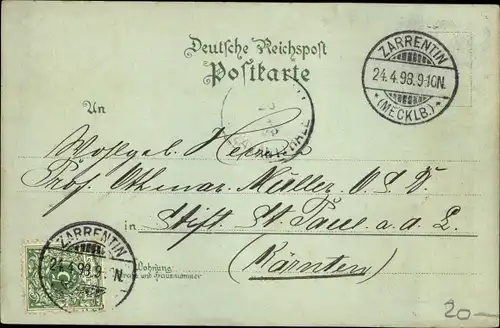 Deutsche Reichspost
Postkarte
ZARRENTIN
24.4.98.9-10N.
* (MECKLB.) *
An
Wohlgeb. Herrn
Prof. Othmar Müller O.S.B.
in Stift St. Paul a. a. L.
(Kärnten)
Wohnung
(Straße und Hausnummer)
ZARRENTIN
24.4.98.9-10N.
20-